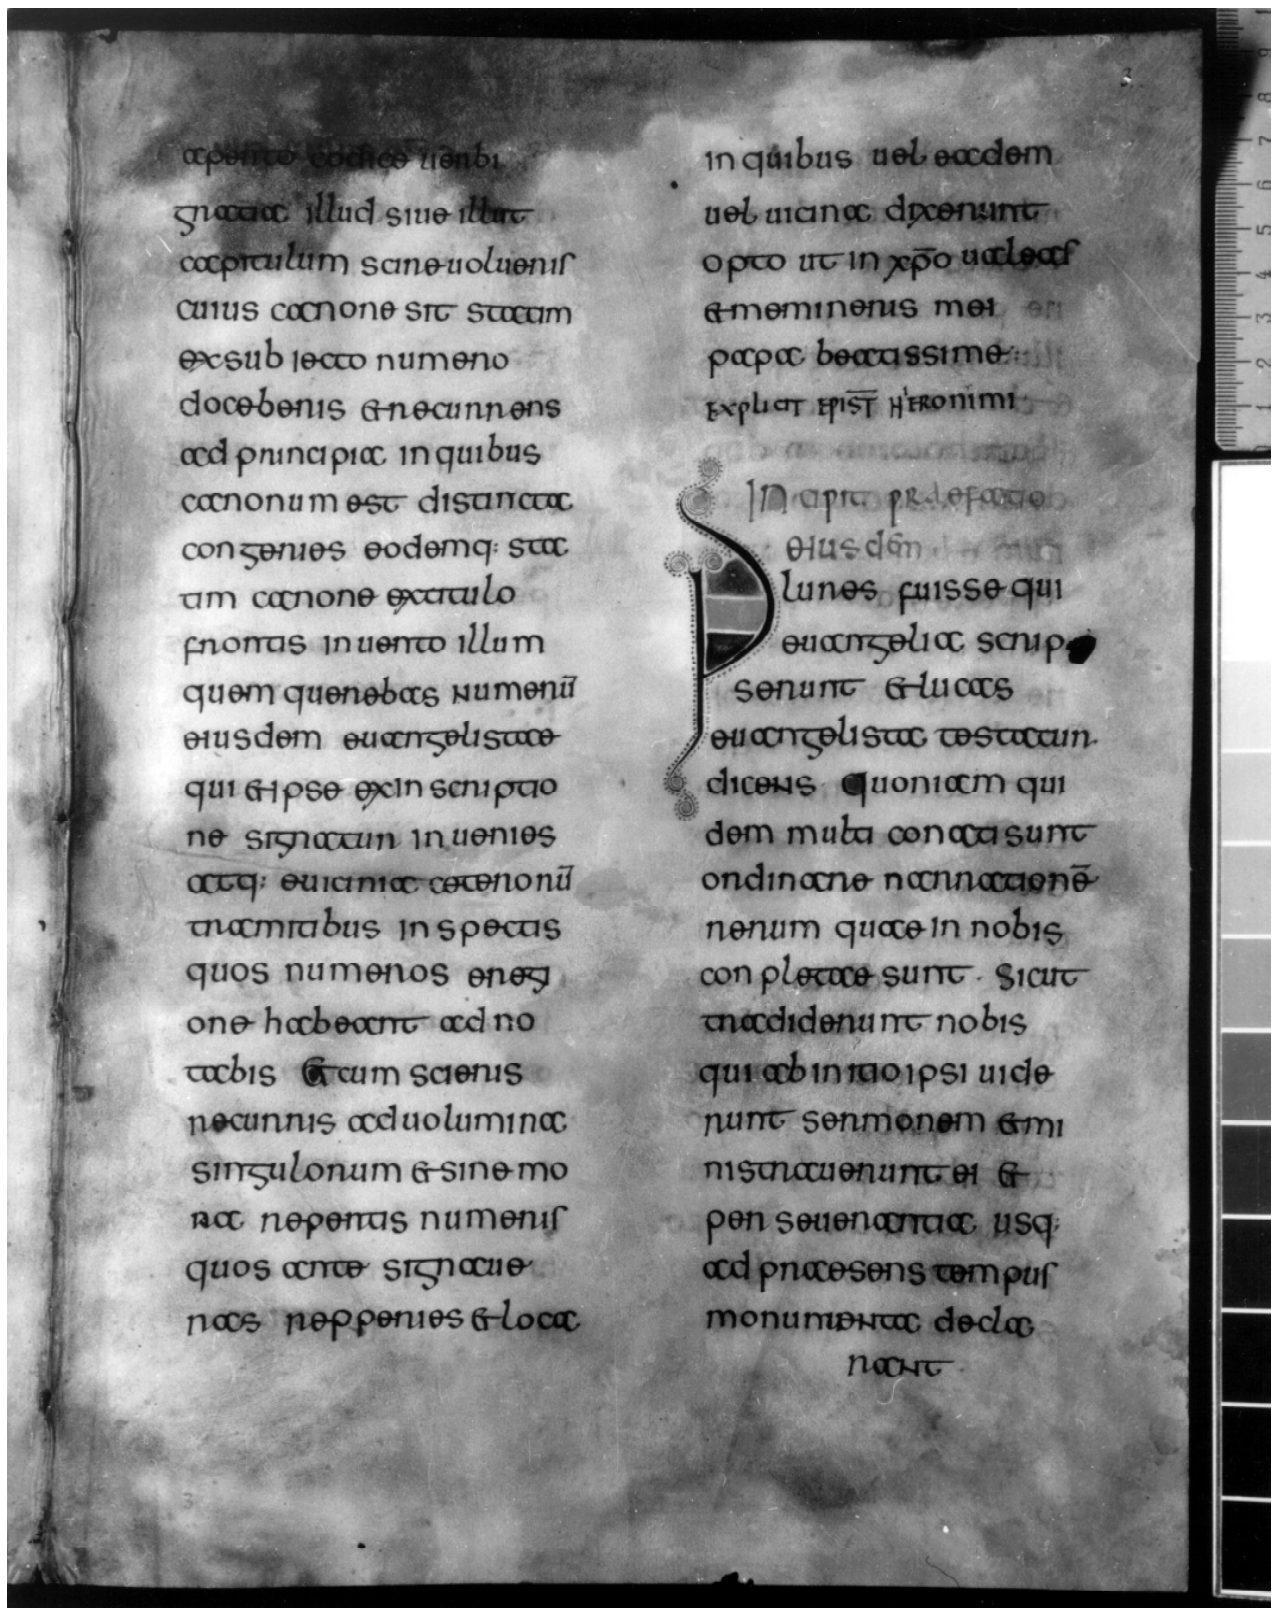 aperto codice uerbi
gratia illud siue illut
capitulum scire uolueris
cuius canone sit statim
ex sub iecto numero
doceberis & recurrens
ad principia in quibus
canonum est distincta
congeries eodemq: sta
tim canone ex titulo
frontis inuento illum
quem querebas numerū
eiusdem euangelistae
qui & ipse ex inscriptio
ne signatur inuenies
atq: euicinia ceterorū
tramitibus inspectis
quos numeros eregi
one habeant ad no
tabis & cum scieris
recurris ad uolumina
singulorum & sine mo
ra repertis numeris
quos ante signaue
ras repperies & loca
in quibus uel eadem
uel uicina dixerunt
opto ut in xp̄o ualeas
& memineris mei
papa beatissime:
explicit epist̄ h'eronimi
Incipit praefatio
eiusdem
Plures fuisse qui
euangelia scrip
serunt & lucas
euangelista testatur
dicens Quoniam qui
dem multi conati sunt
ordinare narrationē
rerum quae in nobis
conpletae sunt. sicut
tradiderunt nobis
qui ab initio ipsi uide
runt sermonem & mi
nistrauerunt ei &
perseuerantia usq:
ad praesens tempus
monumenta decla
rant
3
3